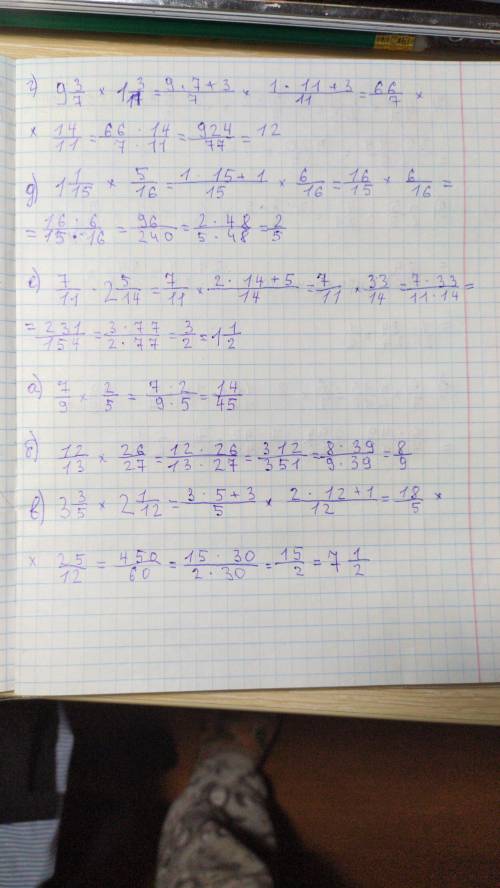 г) 9 3/7 × 1 3/11 = (9 · 7 + 3)/7 × (1 · 11 + 3)/11 = 66/7 ×
× 14/11 = (66 · 14)/(7 · 11) = 924/77 = 12
д) 1 1/15 × 5/16 = (1 · 15 + 1)/15 × 6/16 = 16/15 × 6/16 =
= (16 · 6)/(15 · 16) = 96/240 = (2 · 48)/(5 · 48) = 2/5
е) 7/11 · 2 5/14 = 7/11 × (2 · 14 + 5)/14 = 7/11 × 33/14 = (7 · 33)/(11 · 14) =
= 231/154 = (3 · 77)/(2 · 77) = 3/2 = 1 1/2
а) 7/9 × 2/5 = (7 · 2)/(9 · 5) = 14/45
б) 12/13 × 26/27 = (12 · 26)/(13 · 27) = 312/351 = (8 · 39)/(9 · 39) = 8/9
в) 3 3/5 × 2 1/12 = (3 · 5 + 3)/5 × (2 · 12 + 1)/12 = 18/5 ×
× 25/12 = 450/60 = (15 · 30)/(2 · 30) = 15/2 = 7 1/2